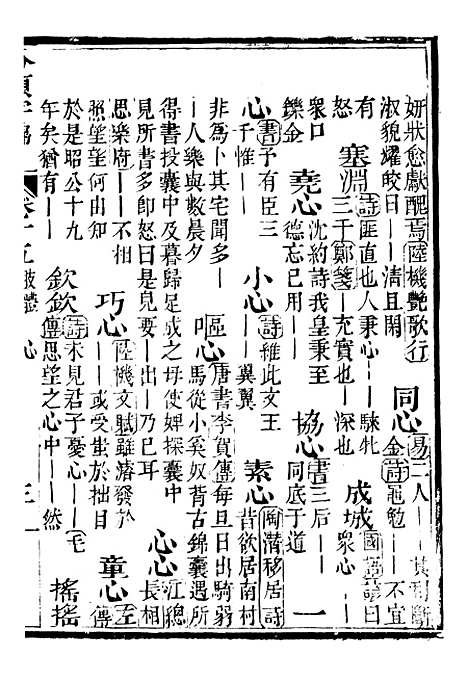 妍狀愈獻醜焉陸機艷歌行 同心 易二人——其利斷
淑貌耀皎日——清且閑 金詩黽勉——不宜
有 塞淵 詩匪直也人秉心——騋牝 成城 國語諺曰
怒 三千鄭箋——充實也——深也 衆心——
衆口 堯心 沈約詩我皇秉至 協心 書三后—— 一
鑠金 德忘已用—— 同底于道
心 書予有臣三 小心 詩維此文王 素心 陶潛移居詩
千惟—— ——翼翼 昔欲居南村
非爲卜其宅聞多— 嘔心 唐書李賀傳每旦日出騎弱
—人樂與數晨夕 馬從小奚奴背古錦囊遇所
得書投囊中及暮歸足成之母使婢探囊中 心心 江總
見所書多即怒曰是兒要——出——乃已耳 長相
思樂府—— 巧心 陸機文賦雖濬發於 童心 左
照望望何由知 ——或受蚩於拙目 傳
於是昭公十九 欽欽 詩未見君子憂心——毛 搖搖
年矣猶有—— 傳思望之心中——然